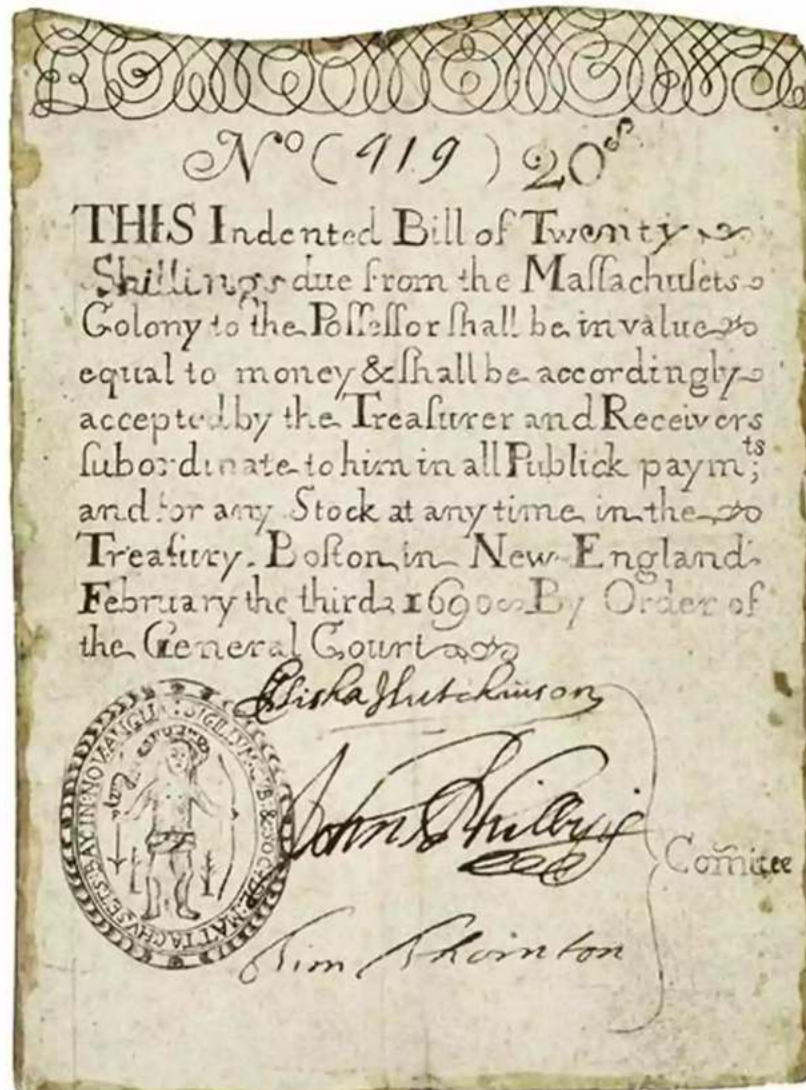 No (919) 20s
THIS Indented Bill of Twenty
Shillings due from the Maſſachuſets
Colony to the Poſſeſſor ſhall be in value
equal to money & ſhall be accordingly
accepted by the Treaſurer and Receivers
ſubordinate to him in all Publick paymts;
and for any Stock at any time in the
Treaſury. Boſton in New England
February the third 1690 By Order of
the General Court
Elisha Hutchinson
John Phillips
Comitee
Tim Thornton
SIGILLVM: GVB: & SOC: DE: MATTACHVSETS: BAY: IN: NOV: ANGLIA: